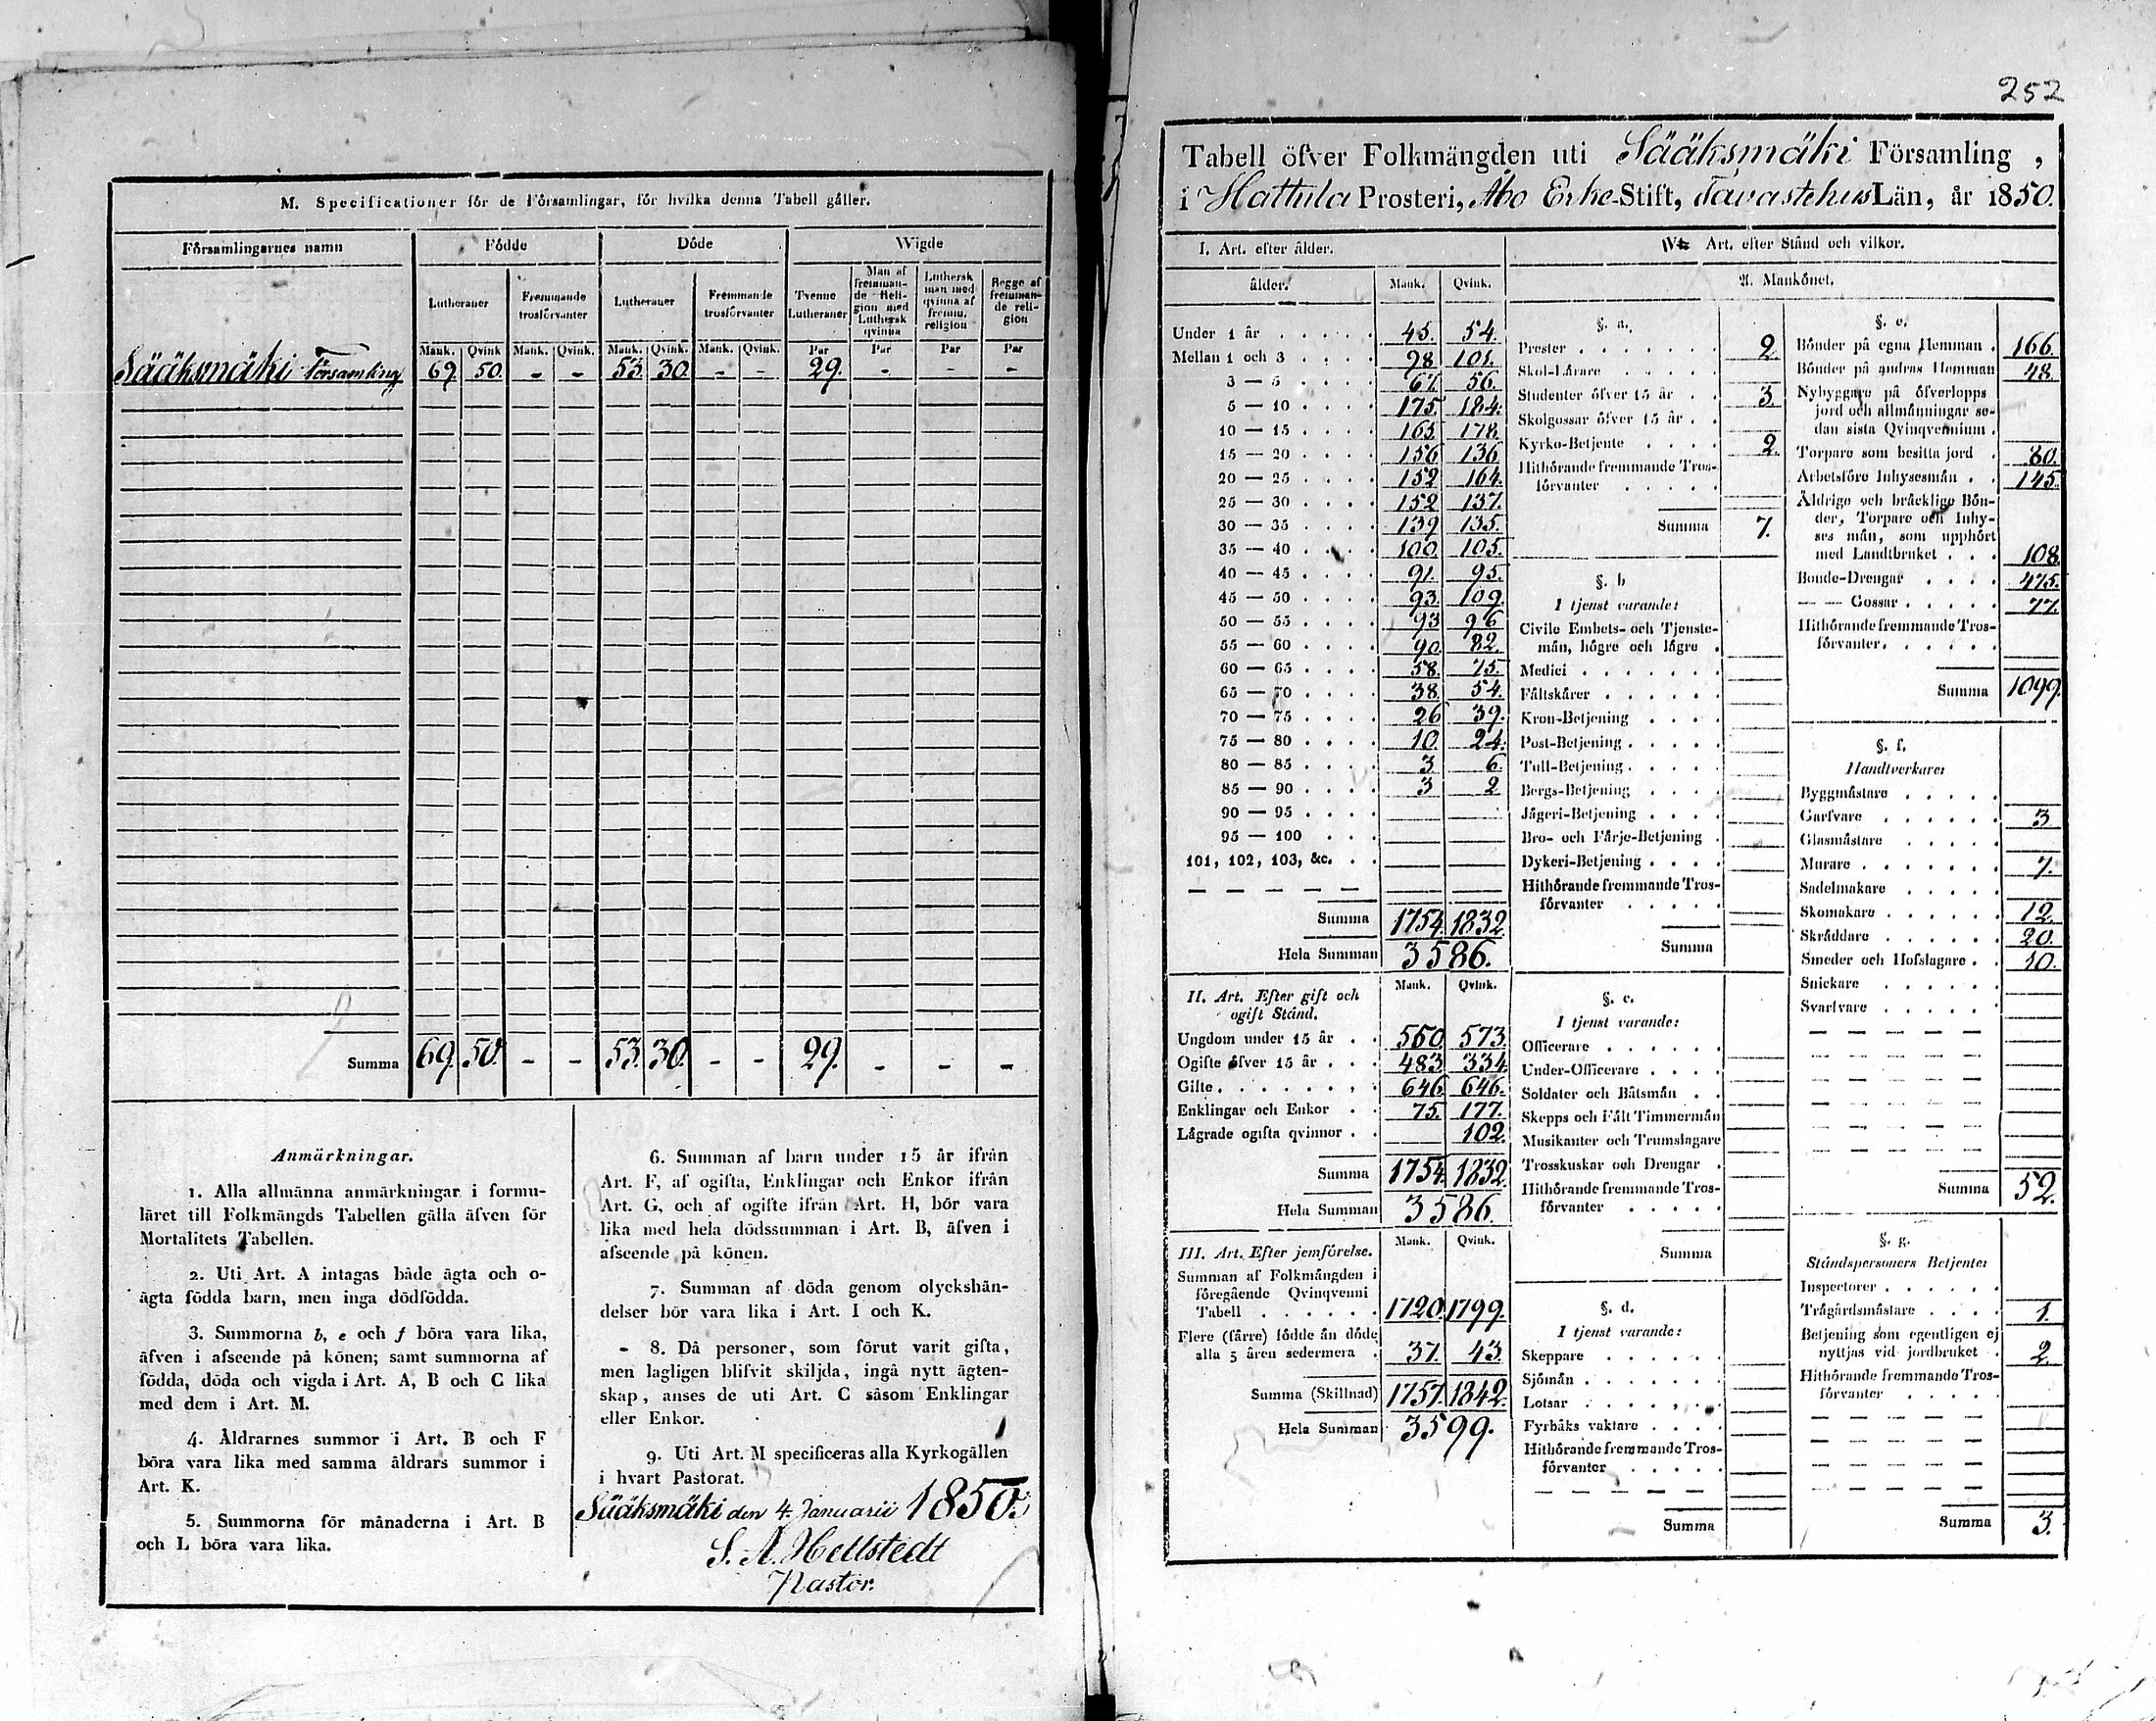 M. Specificationer för de Församlingar, för hvilka denna Tabell gäller.
Församlingarnes namn Födde Döde Wigde
Lutheraner Fremmande trosförvanter Lutheraner Fremmande trosförvanter Tvenne Lutheraner Man af fremmande Religion med Luthersk qvinna Luthersk man med qvinna af fremm. religion Begge af fremmande religion
Mank. Qvink Mank. Qvink. Mank. Qvink. Mank. Qvink. Par Par Par Par
Sääksmäki Församling 69. 50. - - 53. 30. - - 29. - - -
Summa 69. 50. - - 53. 30. - - 29. - - -
Anmärkningar.
1. Alla allmänna anmärkningar i formu-
läret till Folkmängds Tabellen gälla äfven för
Mortalitets Tabellen.
2. Uti Art. A intagas både ägta och o-
ägta födda barn, men inga dödfödda.
3. Summorna b, e och f böra vara lika,
äfven i afseende på könen; samt summorna af
födda, döda och vigda i Art. A, B och C lika
med dem i Art. M.
4. Åldrarnes summor i Art. B och F
böra vara lika med samma åldrars summor i
Art. K.
5. Summorna för månaderna i Art. B
och L böra vara lika.
6. Summan af barn under 15 år ifrån
Art. F, af ogifta, Enklingar och Enkor ifrån
Art. G, och af ogifte ifrån Art. H, bör vara
lika med hela dödssumman i Art. B, äfven i
afseende på könen.
7. Summan af döda genom olyckshän-
delser bör vara lika i Art. I och K.
8. Då personer, som förut varit gifta,
men lagligen blifvit skiljda, ingå nytt ägten-
skap, anses de uti Art. C såsom Enklingar
eller Enkor.
9. Uti Art. M specificeras alla Kyrkogällen
i hvart Pastorat.
Sääksmäki den 4. Januarii 1850.
S. A. Hellstedt
Pastor.
252
Tabell öfver Folkmängden uti Sääksmäki Församling,
i Hattula Prosteri, Åbo Erke-Stift, Tavastehus Län, år 1850.
I. Art. efter ålder.
ålder. Mank. Qvink.
Under 1 år 45. 54.
Mellan 1 och 3 98 101.
3 — 5 67. 56.
5 — 10 175. 184.
10 — 15 165. 178.
15 — 20 156 136
20 — 25 152 164.
25 — 30 152 137.
30 — 35 139 135.
35 — 40 100. 105.
40 — 45 91. 95.
45 — 50 93. 109.
50 — 55 93 96
55 — 60 90. 82.
60 — 65 58. 75.
65 — 70 38. 54.
70 — 75 26 39.
75 — 80 10. 24.
80 — 85 3 6.
85 — 90 3 2
90 — 95
95 — 100
101, 102, 103, &c.
Summa 1754. 1832.
Hela Summan 3586.
II. Art. Efter gift och
ogift Stånd. Mank. Qvink.
Ungdom under 15 år 550. 573.
Ogifte öfver 15 år 483 334.
Gifte 646 646.
Enklingar och Enkor 75. 177.
Lägrade ogifta qvinnor 102.
Summa 1754. 1832.
Hela Summan 3586.
III. Art. Efter jemförelse. Mank. Qvink.
Summan af Folkmängden i
föregående Qvinqvenni
Tabell 1720. 1799.
Flere (färre) födde än döde
alla 5 åren sedermera 37. 43.
Summa (Skillnad) 1757. 1842.
Hela Summan 3599.
IV. Art. efter Stånd och vilkor.
A. Mankönet.
§. a.
Prester 2
Skol-Lärare
Studenter öfver 15 år 3.
Skolgossar öfver 15 år
Kyrko-Betjente 2.
Hithörande fremmande Tros-
förvanter
Summa 7.
§. b
I tjenst varande:
Civile Embets- och Tjenste-
män, högre och lägre
Medici
Fältskärer
Kron-Betjening
Post-Betjening
Tull-Betjening
Bergs-Betjening
Jägeri-Betjening
Bro- och Färje-Betjening
Dykeri-Betjening
Hithörande fremmande Tros-
förvanter
Summa
§. c.
I tjenst varande:
Officerare
Under-Officerare
Soldater och Båtsmän
Skepps och Fält Timmermän
Musikanter och Trumslagare
Trosskuskar och Drengar
Hithörande fremmande Tros-
förvanter
Summa
§. d.
I tjenst varande:
Skeppare
Sjömän
Lotsar
Fyrbåks vaktare
Hithörande fremmande Tros-
förvanter
Summa
§. e.
Bönder på egna Hemman 166.
Bönder på andras Hemman 48.
Nybyggare på öfverlopps
jord och allmänningar se-
dan sista Qvinqvennium
Torpare som besitta jord 80.
Arbetsföre Inhysesmän 145.
Åldrige och bräcklige Bön-
der, Torpare och Inhy-
ses män, som upphört
med Landtbruket 108.
Bonde-Drengar 475.
— — Gossar 77.
Hithörande fremmande Tros-
förvanter
Summa 1099.
§. f.
Handtverkare:
Byggmästare
Garfvare 3
Glasmästare
Murare 7.
Sadelmakare
Skomakare 12.
Skräddare 20.
Smeder och Hofslagare 10.
Snickare
Svarfvare
Summa 52.
§. g.
Ståndspersoners Betjente:
Inspectorer
Trägårdsmästare 1.
Betjening som egentligen ej
nyttjas vid jordbruket 2.
Hithörande fremmande Tros-
förvanter
Summa 3.